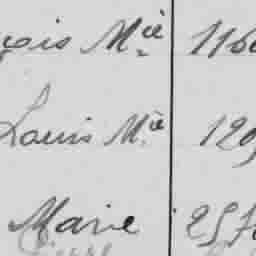 Mie 116
Louis Mie 129
Marie 257